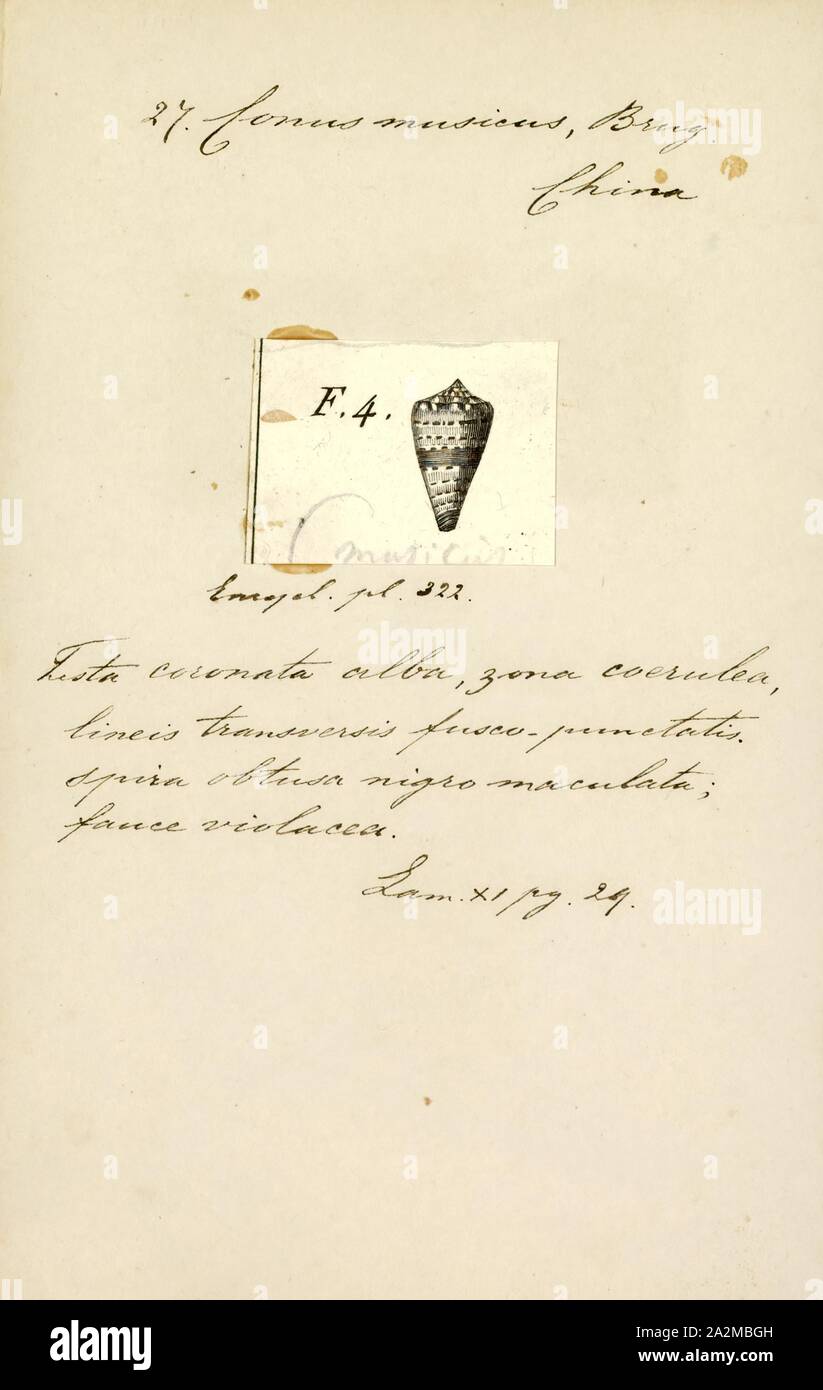 27. Conus musicus, Brug.
China
F. 4.
C musicus
Encycl. pl. 322.
Testa coronata alba, zona coerulea,
lineis transversis fusco-punctatis.
spira obtusa nigro maculata;
fauce violacea.
Lam. XI pg. 29.
alamy
Image ID: 2A2MBGH
www.alamy.com